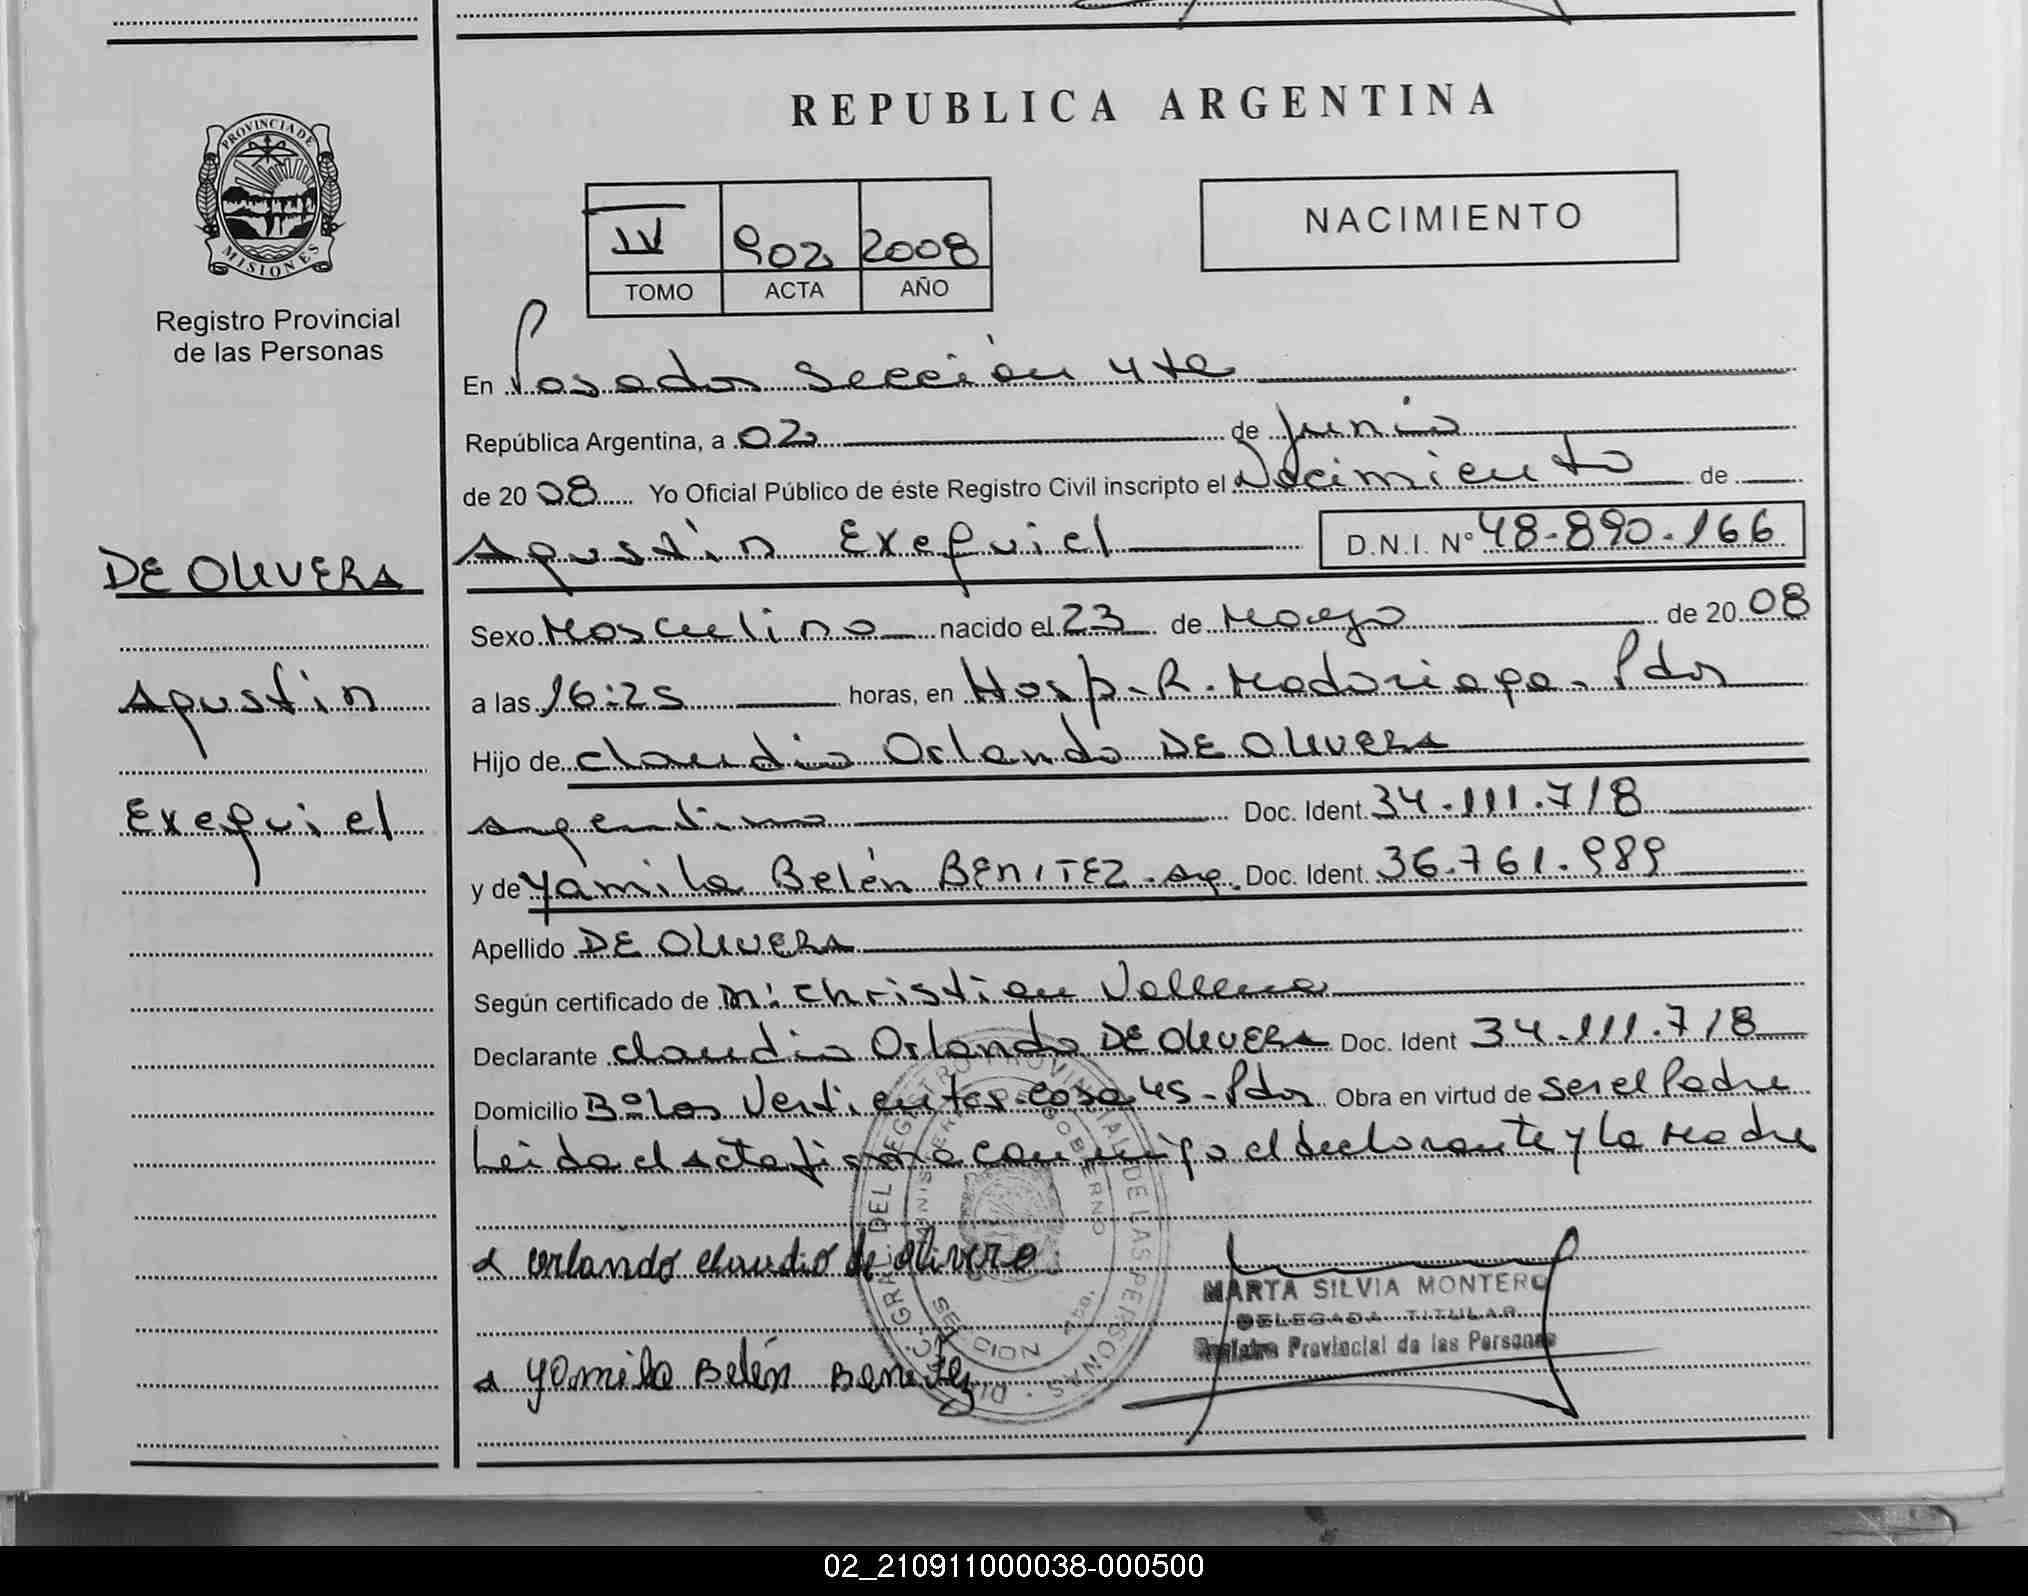 PROVINCIA DE
MISIONES
Registro Provincial
de las Personas
DE OLIVERA
Agustin
Exequiel
REPUBLICA ARGENTINA
IV 902 2008
TOMO ACTA AÑO
NACIMIENTO
En Posadas Sección 4ta
República Argentina, a 02 de Junio
de 2008 Yo Oficial Público de éste Registro Civil inscripto el Nacimiento de
Agustín Exequiel D.N.I. N° 48.890.166
Sexo Masculino nacido el 23 de Mayo de 2008
a las 16:25 horas, en Hosp. R. Madariaga. Pdas
Hijo de Claudio Orlando DE OLIVERA
Argentino Doc. Ident. 34.111.718
y de Yamila Belén BENITEZ. Arg. Doc. Ident. 36.761.989
Apellido DE OLIVERA
Según certificado de Christian
Declarante Claudio Orlando DE OLIVERA Doc. Ident 34.111.718
Domicilio B° Las Vertientes casa 45 - Pdas Obra en virtud de ser el Padre
Leida el acta firma conmigo el declarante y la Madre
Orlando Claudio de Olivera
Yamila Belén Benitez
DIREC. GRAL. DEL REGISTRO PROVINCIAL DE LAS PERSONAS
MINISTERIO GOBERNO
MARTA SILVIA MONTERO
DELEGADA TITULAR
Registro Provincial de las Personas
02_210911000038-000500